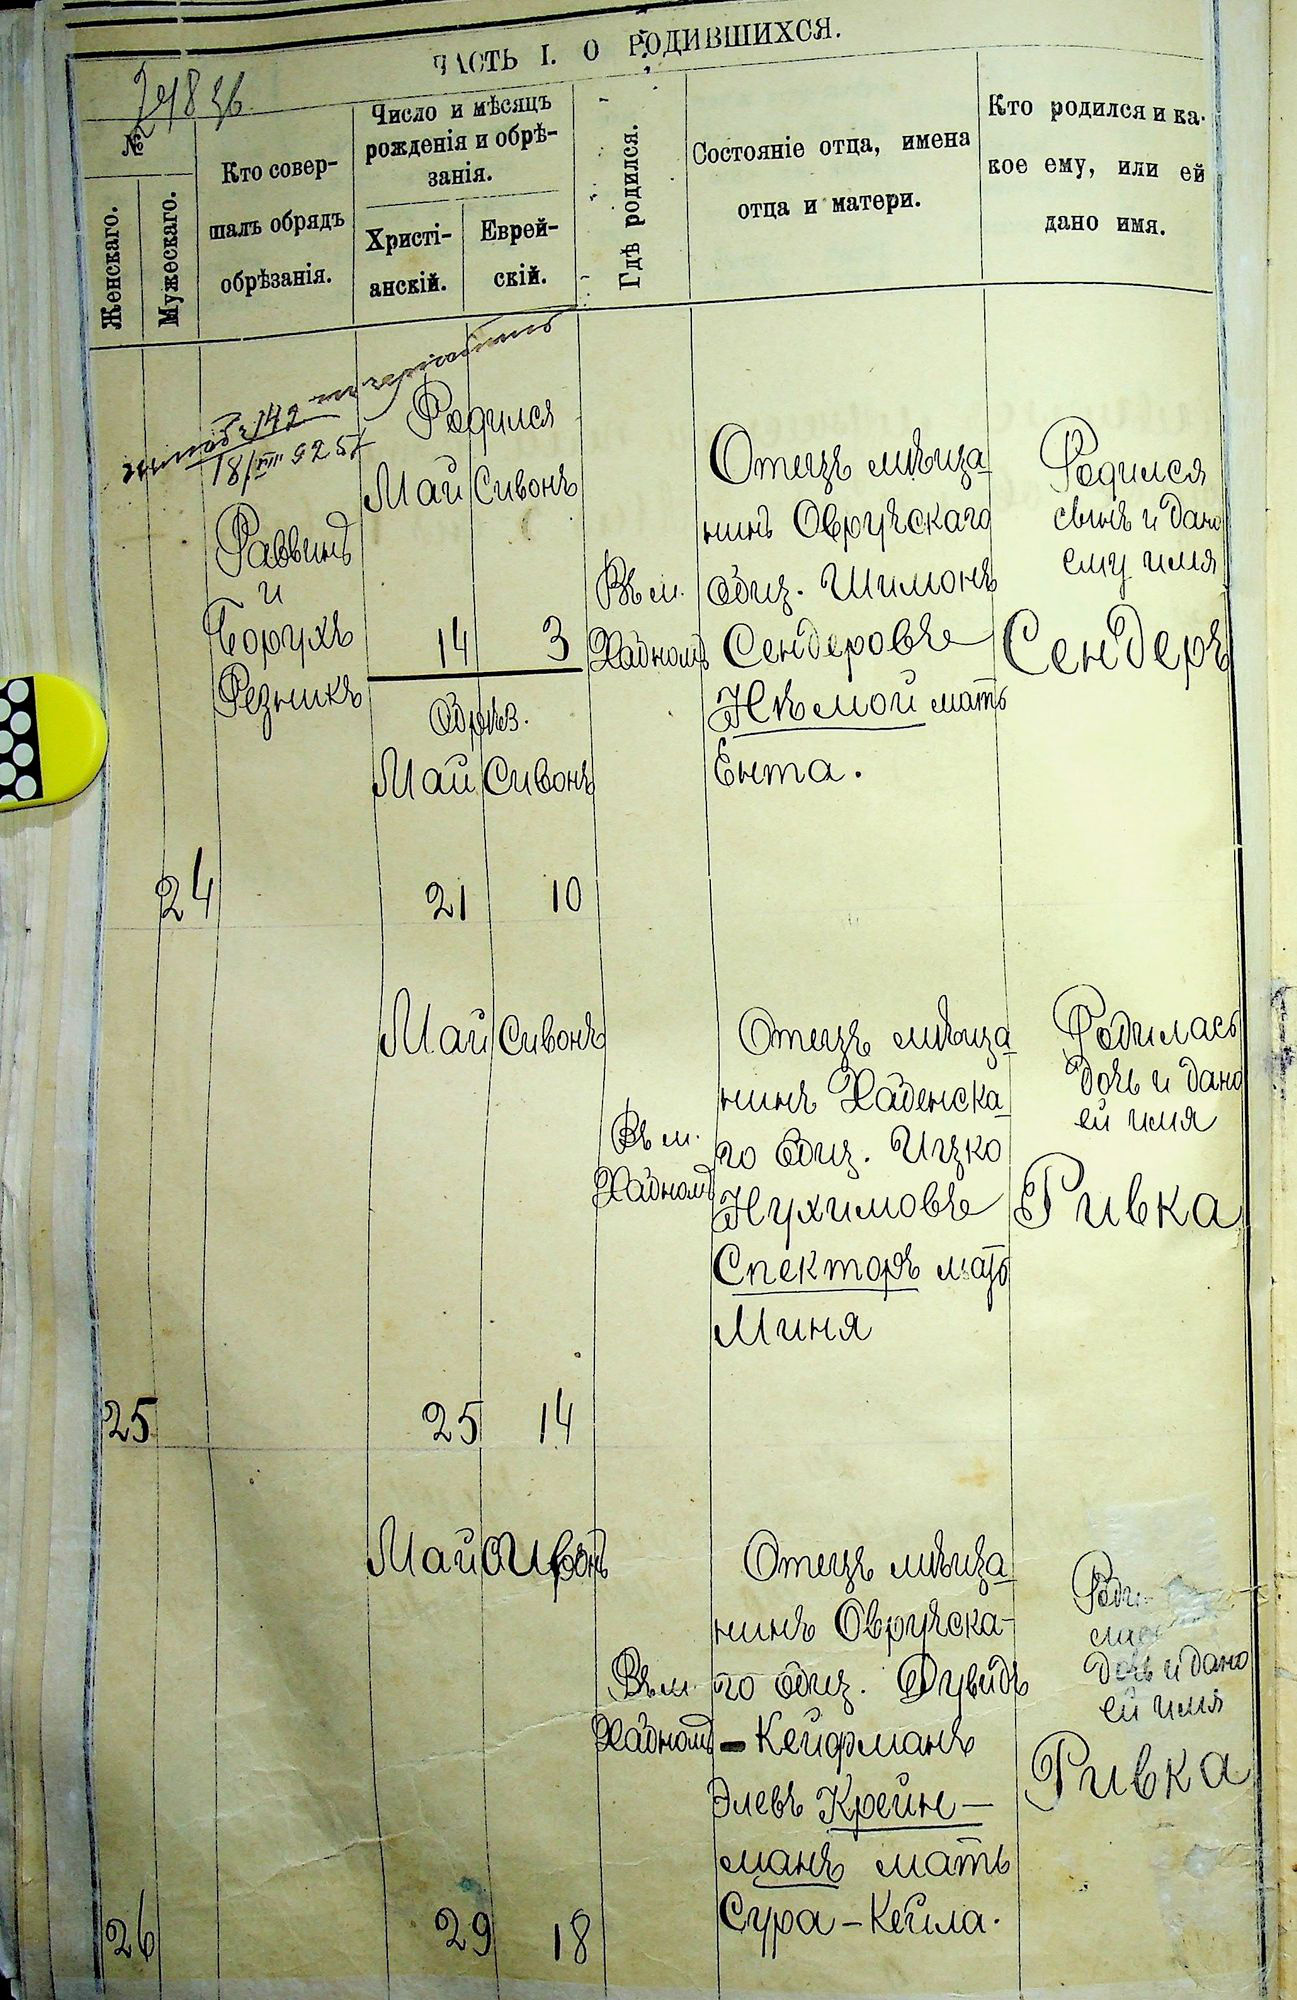 ЧАСТЬ I. О РОДИВШИХСЯ.
№
Женскаго.
Мужескаго.
Кто совер-
шалъ обрядъ
обрѣзанія.
Число и мѣсяцъ
рожденія и обрѣ-
занія.
Христі-
анскій.
Еврей-
скій.
Гдѣ родился.
Состояніе отца, имена
отца и матери.
Кто родился и ка-
кое ему, или ей
дано имя.
24
Раввинъ
и
Борухъ
Резникъ
Родился
Май Сивонъ
14 3
Обрѣз.
Май Сивонъ
21 10
Въ м.
Хабномъ
Отецъ мѣща
нинъ Овручскаго
общ. Шимонъ
Сендеровъ
Нѣмой мать
Ента.
Родился
сынъ и дано
ему имя
Сендеръ
25
Май Сивонъ
25 14
Въ м.
Хабномъ
Отецъ мѣща
нинъ Хабенска
го общ. Ицко
Нухимовъ
Спекторъ мать
Миня
Родилась
дочь и дано
ей имя
Ривка
26
Май Сивонъ
29 18
Въ м.
Хабномъ
Отецъ мѣща
нинъ Овручска-
го общ. Дувидъ
-Кейфманъ
Элевъ Крейн-
манъ мать
Сура-Кейла.
дочь и дано
ей имя
Ривка